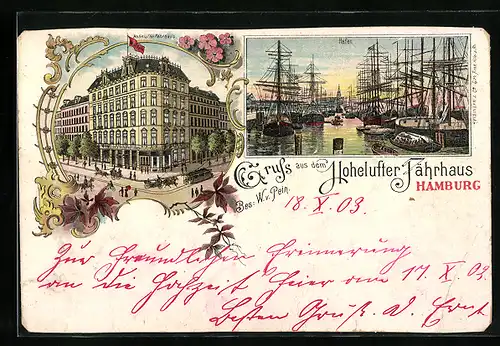 Hohelufter Fährhaus
Hafen
Gruss aus dem Hohelufter-Fährhaus
HAMBURG
Bes: W. v. Pein.
18. X. 03.
Zur Freundlichen Erinnerung
an die Hochzeit feier am 17. X. 03.
Besten Gruß. A. Ernst